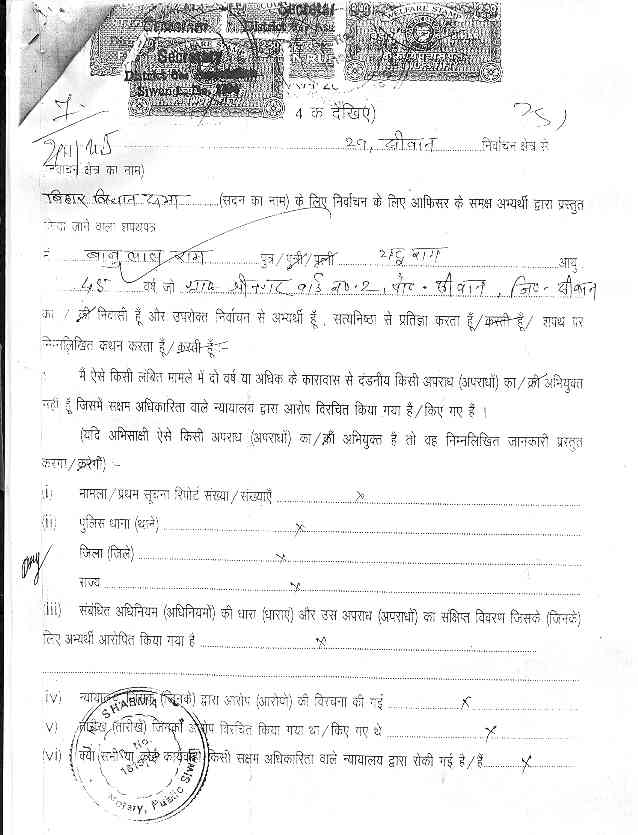 Secretary
Secretary
District Bar Association
Siwan
4 क देखिए)
29, सीवान निर्वाचन क्षेत्र से
निर्वाचन क्षेत्र का नाम)
बिहार विधान सभा (सदन का नाम) के लिए निर्वाचन के लिए आफिसर के समक्ष अभ्यर्थी द्वारा प्रस्तुत
किया जाने वाला शपथपत्र
बाबु लाल राम पुत्र/पुत्री/पत्नी राम आयु
45 वर्ष जो श्रीनगर वार्ड नं०-2, पो०- सीवान, जि०- सीवान
का / की निवासी हूँ और उपरोक्त निर्वाचन से अभ्यर्थी हूँ , सत्यनिष्ठा से प्रतिज्ञा करता हूँ/करती हूँ/ शपथ पर
निम्नलिखित कथन करता हूँ/करती हूँ:-
मैं ऐसे किसी लंबित मामले में दो वर्ष या अधिक के कारावास से दंडनीय किसी अपराध (अपराधों) का/की अभियुक्त
नहीं हूँ जिसमें सक्षम अधिकारिता वाले न्यायालय द्वारा आरोप विरचित किया गया है/किए गए हैं ।
(यदि अभिसाक्षी ऐसे किसी अपराध (अपराधों) का/की अभियुक्त है तो वह निम्नलिखित जानकारी प्रस्तुत
करेगा/करेगी) :-
(i) मामला/प्रथम सूचना रिपोर्ट संख्या/संख्याएँ x
(ii) पुलिस थाना (थाने) x
जिला (जिले) x
राज्य x
(iii) संबंधित अधिनियम (अधिनियमों) की धारा (धाराएं) और उस अपराध (अपराधों) का संक्षिप्त विवरण जिसके (जिनके)
लिए अभ्यर्थी आरोपित किया गया है x
iv) न्यायालय जिसके (जिनके) द्वारा आरोप (आरोपों) की विरचना की गई x
v) तारीख (तारीखें) जिनको आरोप विरचित किया गया था/किए गए थे x
(vi) क्या सभी या कोई कार्यवाही किसी सक्षम अधिकारिता वाले न्यायालय द्वारा रोकी गई है/हैं x
SHARMA
Notary, Public Siwan